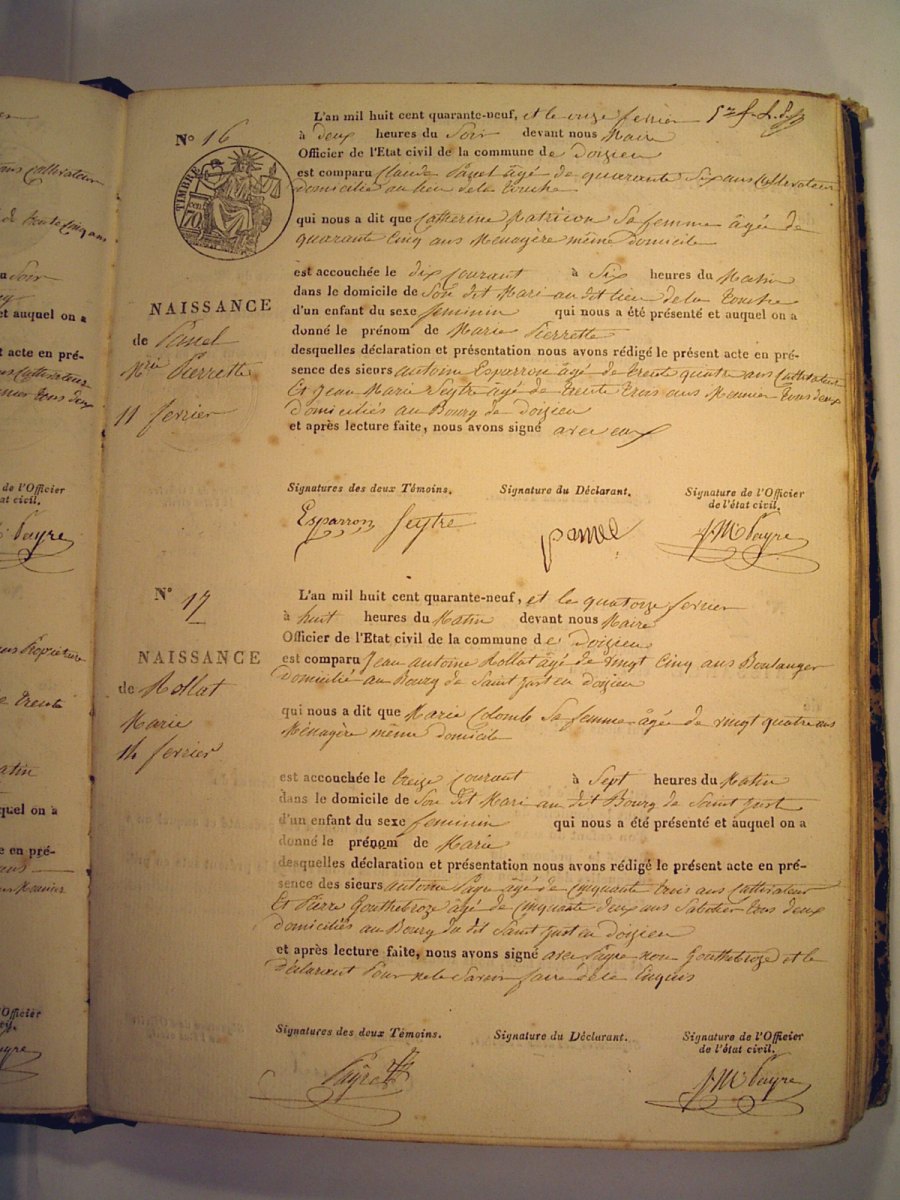 ans Cultivateur
de trente Cinq ans
u Soir
et auquel on a
t acte en pré-
ans Cultivateur
Meunier tous deux
de l'Officier
at civil.
Payre
ans Propriétaire
e trente
atin
quel on a
e en pré-
ans
Meunier
l'Officier
Payre
N° 16
TIMBRE
70 cen
NAISSANCE
de Panel
Mrie Pierrette
11 fevrier
L'an mil huit cent quarante-neuf, et le onze fevrier
à deux heures du Soir devant nous Maire
Officier de l'Etat civil de la commune de doizieu
est comparu Claude Panel âgé de quarante Six ans Cultivateur
domicilié au lieu de la
qui nous a dit que Catherine Matricon Sa femme âgé de
quarante Cinq ans Menagère même domicile
est accouchée le dix courant à Six heures du Matin
dans le domicile de Son dit Mari au dit lieu de la
d'un enfant du sexe feminin qui nous a été présenté et auquel on a
donné le prénom de Marie Pierrette
desquelles déclaration et présentation nous avons rédigé le présent acte en pré-
sence des sieurs antoine Esparron âgé de trente quatre ans Cultivateur
Et Jean Marie Seytre âgé de trente trois ans Meunier tous deux
domiciliés au Bourg de doizieu
et après lecture faite, nous avons signé avec eux
Signatures des deux Témoins. Signature du Déclarant. Signature de l'Officier
de l'état civil.
Esparron Seytre panel J M Payre
N° 17
NAISSANCE
de Rollat
Marie
14 fevrier
L'an mil huit cent quarante-neuf, et le quatorze fevrier
à huit heures du Matin devant nous Maire
Officier de l'Etat civil de la commune de doizieu
est comparu Jean antoine Rollat âgé de vingt Cinq ans Boulanger
domicilié au Bourg de Saint Just en doizieu
qui nous a dit que Marie Colomb Sa femme âgée de vingt quatre ans
Ménagère même domicile
est accouchée le treize courant à Sept heures du Matin
dans le domicile de Son dit Mari au dit Bourg de Saint Just
d'un enfant du sexe feminin qui nous a été présenté et auquel on a
donné le prénom de Marie
desquelles déclaration et présentation nous avons rédigé le présent acte en pré-
sence des sieurs antoine Payre âgé de Cinquante trois ans Cultivateur
Et Pierre Gouthebroze âgé de Cinquante deux ans Sabotier tous deux
domiciliés au Bourg du dit Saint Just en doizieu
et après lecture faite, nous avons signé avec Payre non Gouthebroze et le
déclarant Pour ne le Savoir faire de ce Enquis
Signatures des deux Témoins. Signature du Déclarant. Signature de l'Officier
de l'état civil.
Payre J M Payre